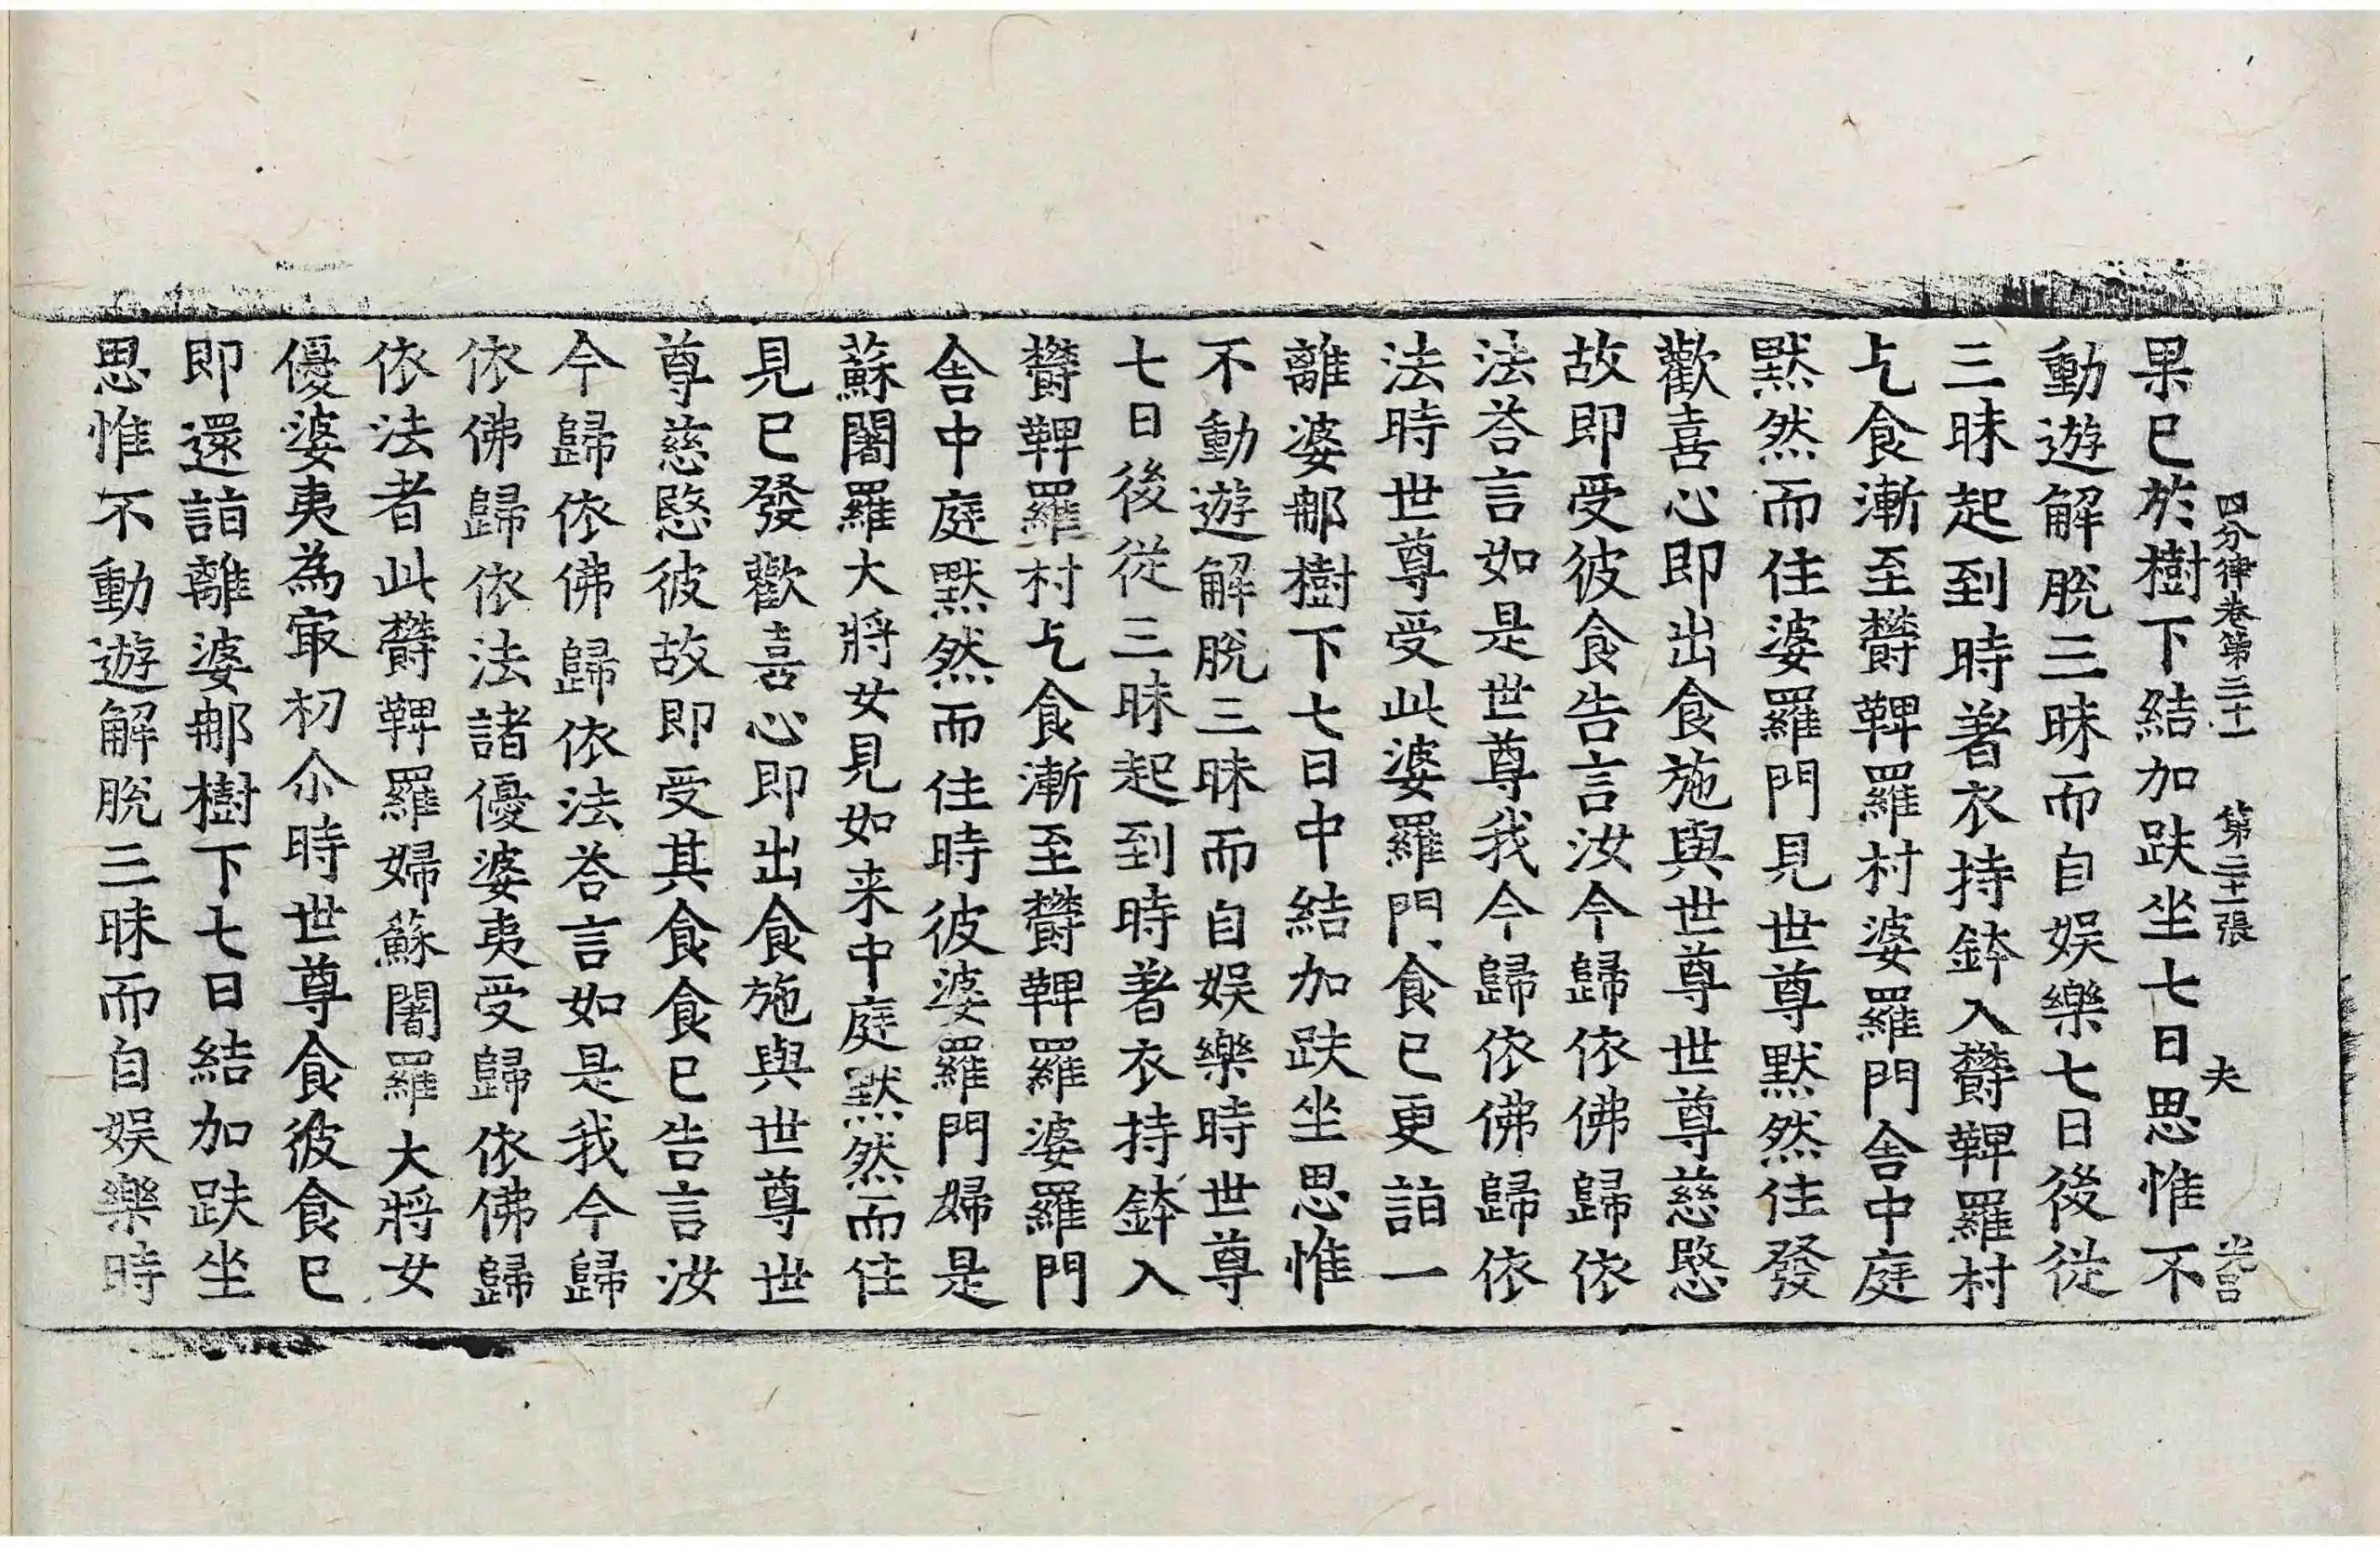 四分律卷第三十一 第二十一張 夫 光呂
果已於樹下結加趺坐七日思惟不
動遊解脫三昧而自娛樂七日後從
三昧起到時著衣持鉢入欝鞞羅村
乞食漸至欝鞞羅村婆羅門舍中庭
默然而住婆羅門見世尊默然住發
歡喜心即出食施與世尊世尊慈愍
故即受彼食告言汝今歸依佛歸依
法荅言如是世尊我今歸依佛歸依
法時世尊受此婆羅門食已更詣一
離婆那樹下七日中結加趺坐思惟
不動遊解脫三昧而自娛樂時世尊
七日後從三昧起到時著衣持鉢入
欝鞞羅村乞食漸至欝鞞羅婆羅門
舍中庭默然而住時彼婆羅門婦是
蘇闍羅大將女見如来中庭默然而住
見已發歡喜心即出食施與世尊世
尊慈愍彼故即受其食食已告言汝
今歸依佛歸依法荅言如是我今歸
依佛歸依法諸優婆夷受歸依佛歸
依法者此欝鞞羅婦蘇闍羅大將女
優婆夷為㝡初尒時世尊食彼食已
即還詣離婆那樹下七日結加趺坐
思惟不動遊解脫三昧而自娛樂時